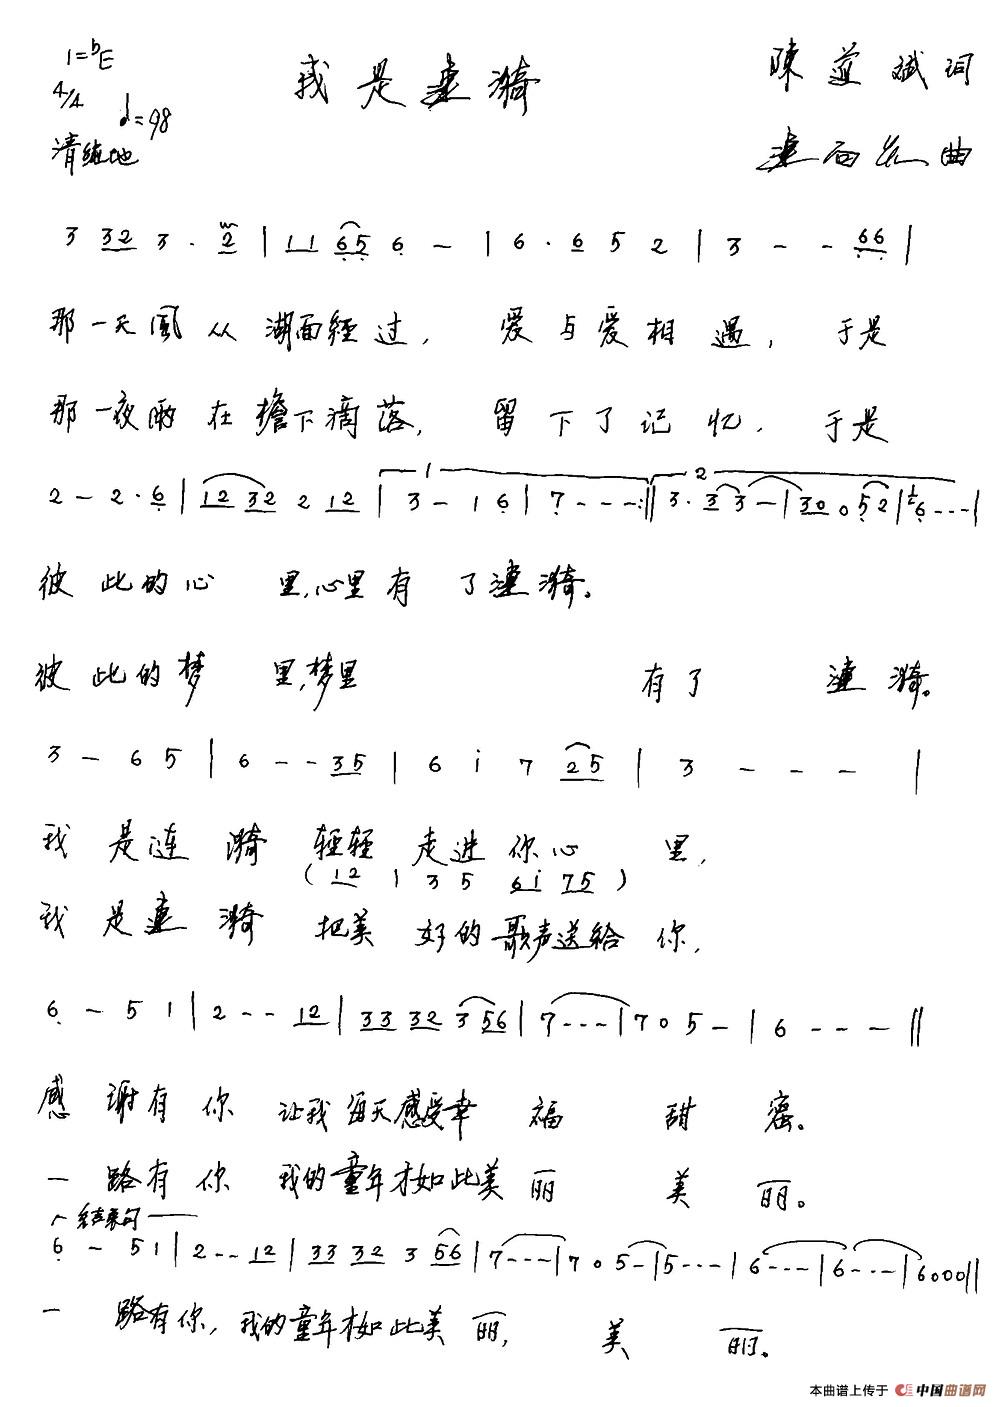 1=bE
我是涟漪
陳道斌词
4/4
♩=98
清纯地
曲
3 32 3 · 2 | 11 65 6 - | 6 · 6 5 2 | 3 - - 66 |
那一天風从湖面经过, 爱与爱相遇, 于是
那一夜雨在檐下滴落, 留下了记忆, 于是
2 - 2 · 6 | 12 32 2 12 | 1 3 - 1 6 | 7 - - - :|| 2 3 · 3 3 - | 30 0 52 | 1 6 - - - |
彼此的心里,心里有了涟漪。
彼此的梦里,梦里有了涟漪。
3 - 6 5 | 6 - - 35 | 6 i 7 25 | 3 - - - |
我是涟漪轻轻走进你心里,
( 12 1 3 5 6i 75 )
我是涟漪把美好的歌声送给你,
6 - 5 1 | 2 - - 12 | 33 32 3 56 | 7 - - - | 7 0 5 - | 6 - - - ||
感谢有你让我每天感受幸福甜蜜。
一路有你我的童年才如此美丽美丽。
结束句
6 - 5 1 | 2 - - 12 | 33 32 3 56 | 7 - - - | 7 0 5 - | 5 - - - | 6 - - - | 6 - - - | 6000 ||
一路有你,我的童年才如此美丽,美丽。
本曲谱上传于 中国曲谱网